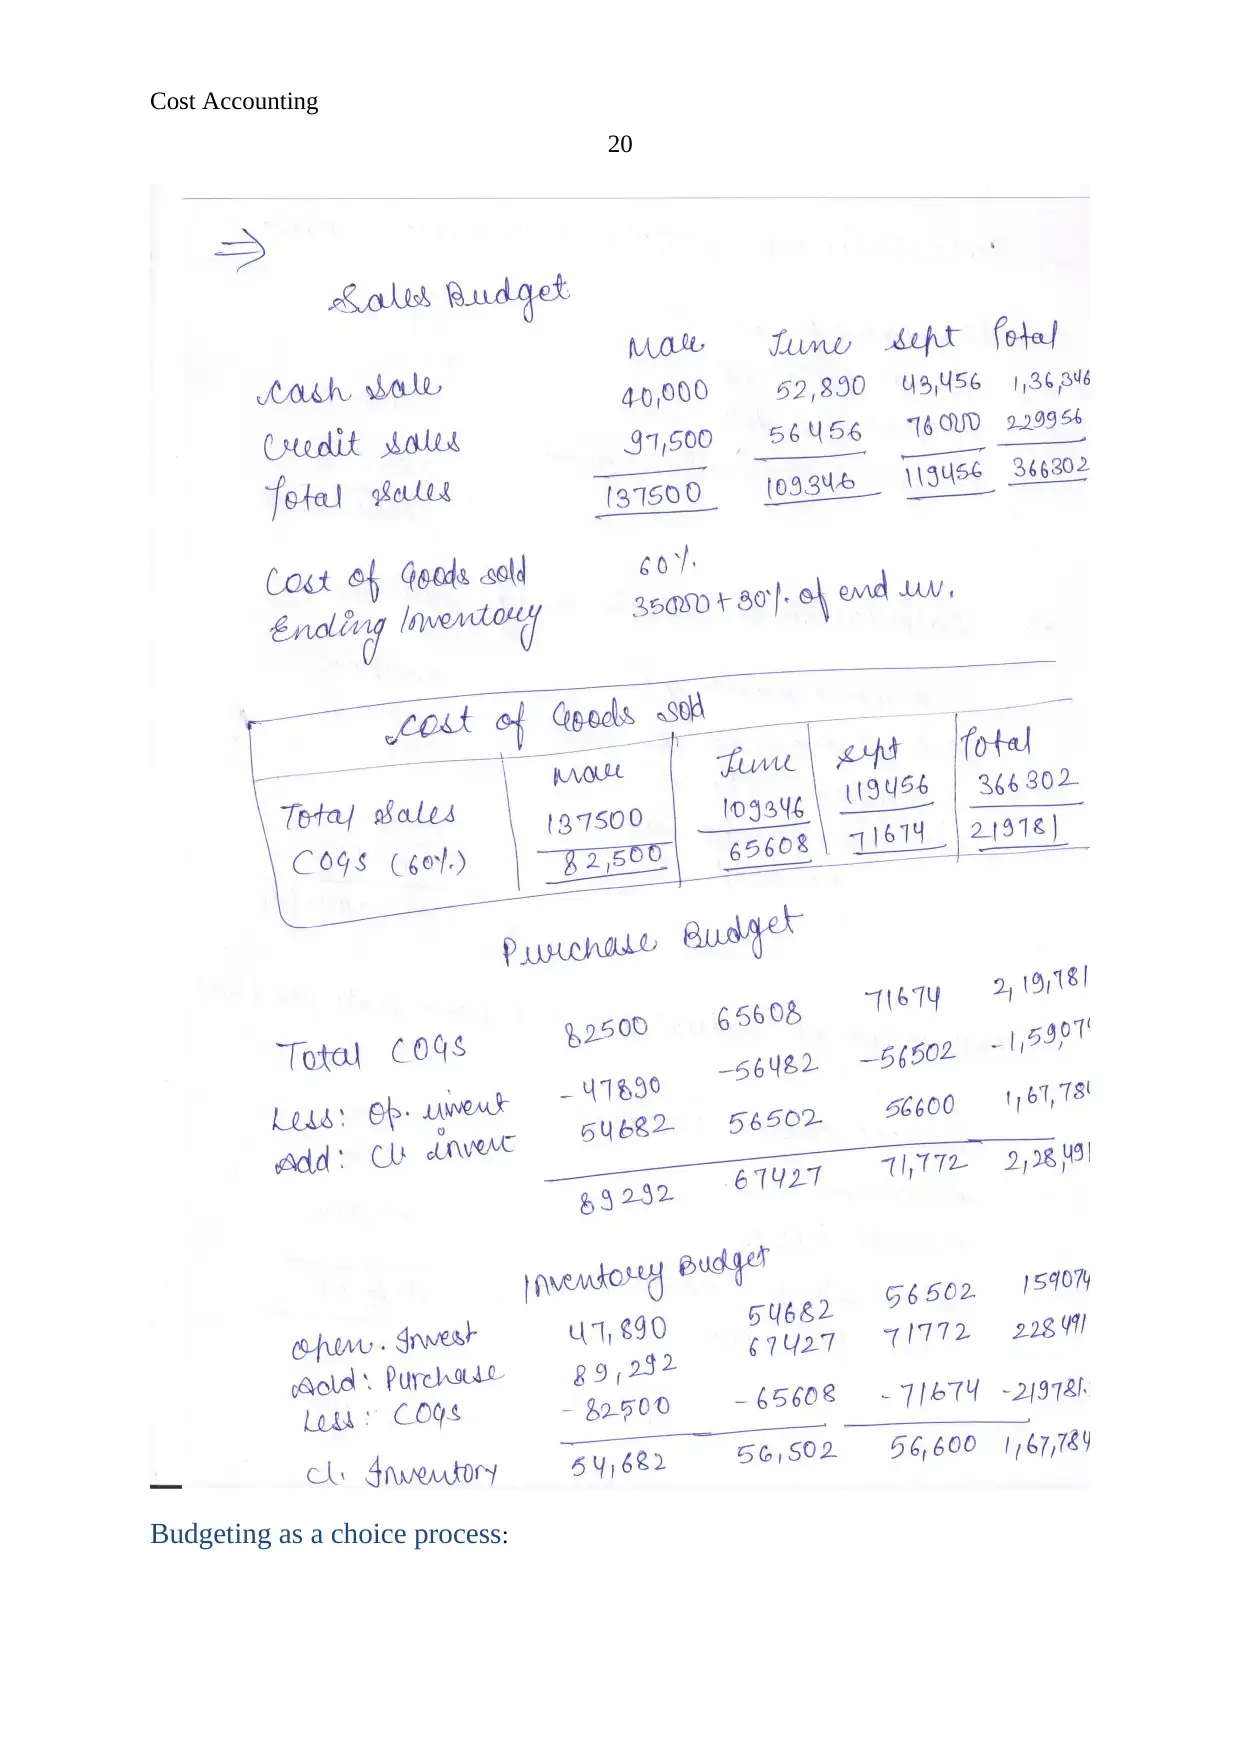 Cost Accounting
20
⇒
Sales Budget
June Sept Total
Cash Sale 40,000 52,890 43,456 1,36,346
Credit Sales 97,500 56456 76000 229956
Total Sales 137500 109346 119456 366302
Cost of Goods sold 60%.
Ending Inventory 35000 + 30%. of end inv.
Cost of Goods Sold
June Sept Total
Total Sales 137500 109346 119456 366302
COGS (60%.) 82,500 65608 71674 219781
Purchase Budget
Total COGS 82500 65608 71674 2,19,781
Less: Op. invent - 47890 -56482 -56502 -1,59,07
Add: Cl. invent 54682 56502 56600 1,67,78
89292 67427 71,772 2,28,491
Inventory Budget
Open. Invest 47,890 54682 56502 159074
Add: Purchase 89,292 67427 71772 228491
Less: COGS - 82500 - 65608 - 71674 -219781
Cl. Inventory 54,682 56,502 56,600 1,67,784
Budgeting as a choice process: